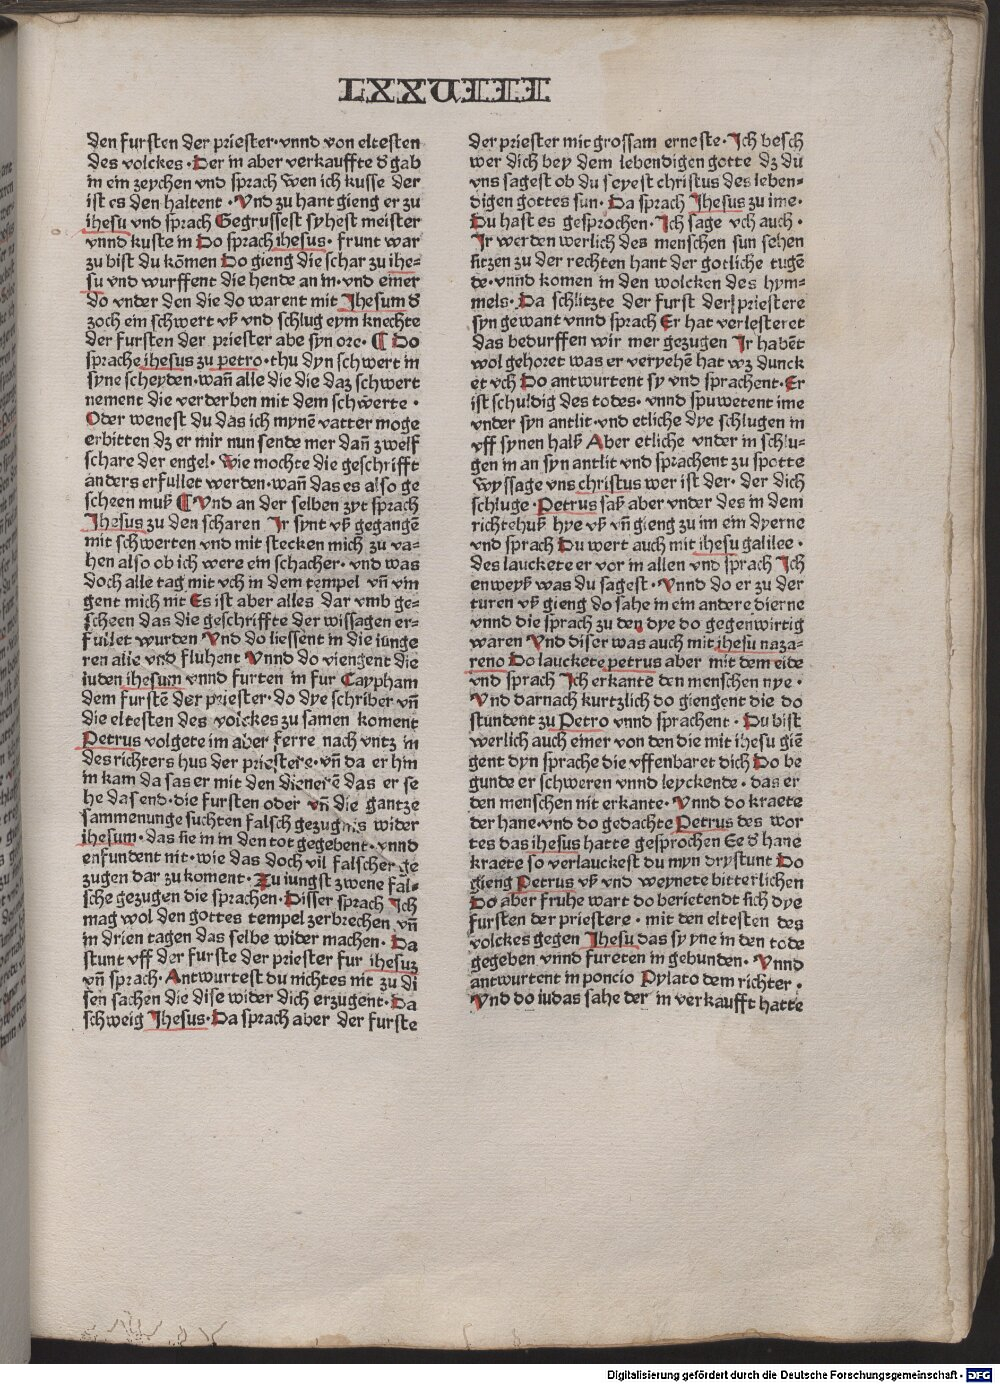 LXXVIIII
den fursten der priester·vnnd von eltesten
des volckes·Der in aber verkauffte d gab
in ein zeychen vnd sprach wen ich kusse der
ist es den haltent·Vnd zu hant gieng er zu
ihesu vnd sprach Gegrussest syhest meister
vnnd kuste in Do sprach ihesus·frunt war
zu bist du kōmen Do gieng die schar zu ihe=
su vnd wurffent die hende an in·vnd einer
do vnder den die do warent mit Jhesum d
zoch ein schwert vß vnd schlug eym knechte
der fursten der priester abe syn ore·¶ Do
sprache ihesus zu petro·thu dyn schwert in
syne scheyden·wañ alle die die daz schwert
nement die verderben mit dem schwerte·
Oder wenest du das ich mynē vatter moge
erbitten dz er mir nun sende mer dañ zwelf
schare der engel·Wie mochte die geschrifft
anders erfullet werden·wañ das es also ge
scheen muß ¶ Vnd an der selben zyt sprach
Jhesus zu den scharen Ir synt vß gegangē
mit schwerten vnd mit stecken mich zu va=
hen also ob ich were ein schacher·vnd was
doch alle tag mit vch in dem tempel vñ vin
gent mich nit Es ist aber alles dar vmb ge=
scheen das die geschriffte der wissagen er=
fullet wurden Vnd do liessent in die iunge
ren alle vnd fluhent Vnnd do viengent die
iuden ihesum vnnd furten in fur Caypham
dem furstē der priester·do dye schriber vñ
die eltesten des volckes zu samen koment
Petrus volgete im aber ferre nach vntz in
des richters hus der priestere·vñ da er hin
in kam da sas er mit den dienerē das er se
he das end·die fursten oder vñ die gantze
sammenunge suchten falsch gezugnis wider
ihesum·das sie in in den tot gegebent·vnnd
enfundent nit·wie das doch vil falscher ge
zugen dar zu koment·Zu iungst zwene fal=
sche gezugen die sprachen·Disser sprach Ich
mag wol den gottes tempel zerbrechen vñ
in drien tagen das selbe wider machen·Da
stunt vff der furste der priester fur ihesuz
vñ sprach·Antwurtest du nichtes nit zu di
sen sachen die dise wider dich erzugent·Da
schweig Jhesus·Da sprach aber der furste
der priester mit grossam erneste·Ich besch
wer dich bey dem lebendigen gotte dz du
vns sagest ob du seyest christus des leben=
digen gottes sun·Da sprach Jhesus zu ime·
Du hast es gesprochen·Ich sage vch auch·
Ir werden werlich des menschen sun sehen
sitzen zu der rechten hant der gotliche tugē
de·vnnd komen in den wolcken des hym=
mels·Da schlitzte der furst der priestere
syn gewant vnnd sprach Er hat verlesteret
das bedurffen wir mer gezugen Ir habēt
wol gehoret was er veryehē hat wz dunck
et vch Do antwurtent sy vnd sprachent·Er
ist schuldig des todes·vnnd spuwetent ime
vnder syn antlit·vnd etliche dye schlugen in
vff synen halß Aber etliche vnder in schlu=
gen in an syn antlit vnd sprachent zu spotte
wyssage vns christus wer ist der·der dich
schluge·Petrus saß aber vnder des in dem
richtehuß hye vß vñ gieng zu im ein dyerne
vnd sprach Du wert auch mit ihesu galilee·
des lauckete er vor in allen vnd sprach Ich
enweyß was du sagest·Vnnd do er zu der
turen vß gieng do sahe in ein andere dierne
vnnd die sprach zu den dye do gegenwirtig
waren Vnd diser was auch mit ihesu naza=
reno Do lauckete petrus aber mit dem eide
vnd sprach Ich erkante den menschen nye·
Vnd darnach kurtzlich do giengent die do
stundent zu Petro vnnd sprachent·Du bist
werlich auch einer von den die mit ihesu giē
gent dyn sprache die vffenbaret dich Do be
gunde er schweren vnnd leyckende·das er
den menschen nit erkante·Vnnd do kraete
der hane·vnd do gedachte Petrus des wor
tes das ihesus hatte gesprochen Ee d hane
kraete so verlauckest du myn drystunt Do
gieng Petrus vß vnd weynete bitterlichen
Do aber fruhe wart do berietendt sich dye
fursten der priestere·mit den eltesten des
volckes gegen Jhesu das sy yne in den tode
gegeben vnnd fureten in gebunden·Vnnd
antwurtent in poncio Pylato dem richter·
Vnd do iudas sahe der in verkaufft hatte
Digitalisierung gefördert durch die Deutsche Forschungsgemeinschaft - DFG